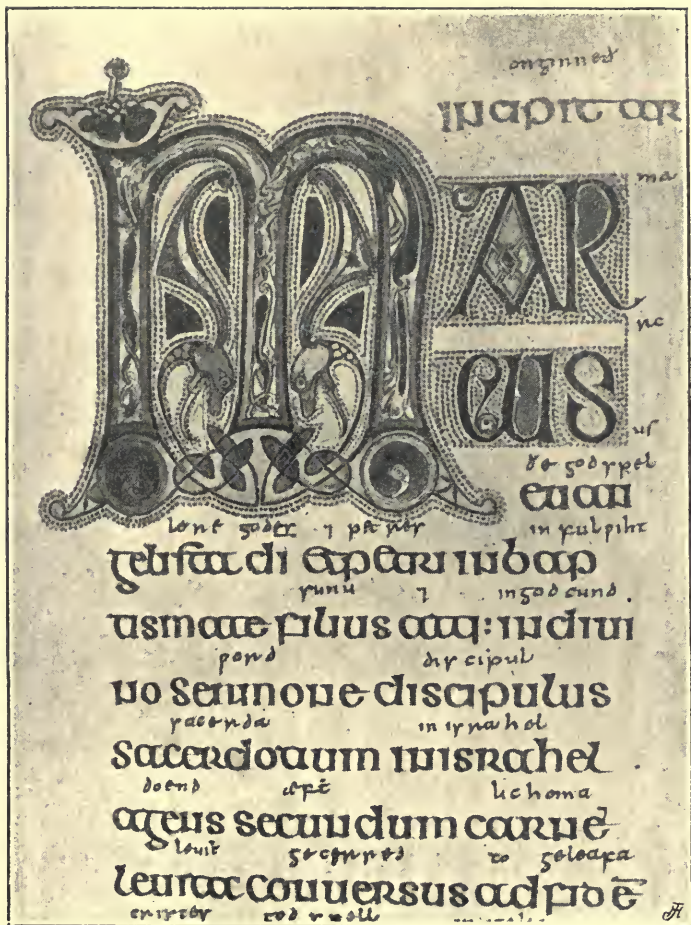 onginneð
INCIPIT AR
ma
MAR
rc
CUS
us
ðe godspel
euan
godes 7 petres in fulpiht
gelista di et petri in bap
sunu 7 in godcund
tismate filius atq: in diui
pord discipul
no sermone discipulus
sacerda in israhel
sacerdotium in israhel
doend æft lichoma
agens secundum carnē
leuit gecerred to geleafa
leuita conuersus ad fidē
cristes godspell